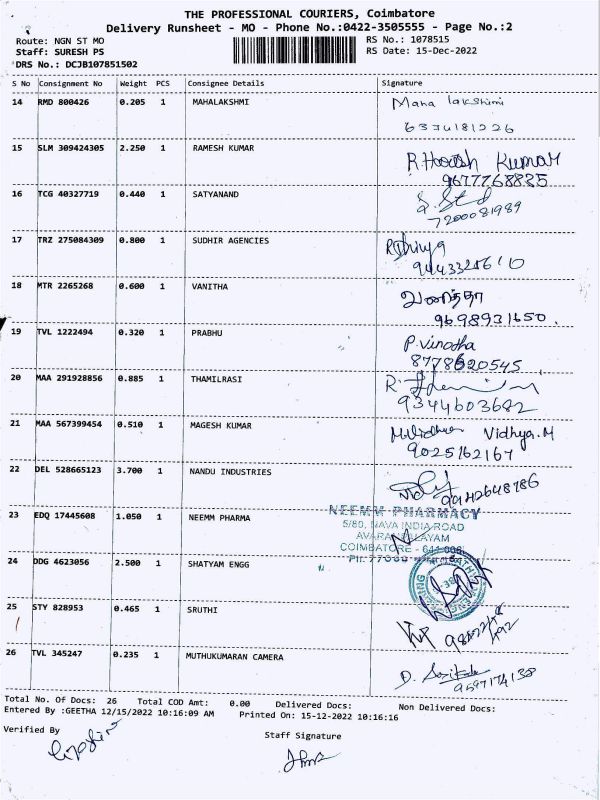 THE PROFESSIONAL COURIERS, Coimbatore
Delivery Runsheet - MO - Phone No.:0422-3505555 - Page No.:2
Route: NGN ST MO
RS No.: 1078515
Staff: SURESH PS
RS Date: 15-Dec-2022
DRS No.: DCJB107851502
S No Consignment No Weight PCS Consignee Details Signature
14 RMD 800426 0.205 1 MAHALAKSHMI Maha lakshimi
6374181226
15 SLM 309424305 2.250 1 RAMESH KUMAR Kumar
9677768835
16 TCG 40327719 0.440 1 SATYANAND
7200081989
17 TRZ 275084309 0.800 1 SUDHIR AGENCIES
18 MTR 2265268 0.600 1 VANITHA வனித்தா
9698931650.
19 TVL 1222494 0.320 1 PRABHU P. vinotha
8778620545
20 MAA 291928856 0.885 1 THAMILRASI
9344603682
21 MAA 567399454 0.510 1 MAGESH KUMAR Vidhya.M
9025162167
22 DEL 528665123 3.700 1 NANDU INDUSTRIES
9942648786
23 EDQ 17445608 1.050 1 NEEMM PHARMA NEEMM PHARMACY
5/80, NAVA INDIA ROAD
COIMBATORE
24 DDG 4623056 2.500 1 SHATYAM ENGG
25 STY 828953 0.465 1 SRUTHI
26 TVL 345247 0.235 1 MUTHUKUMARAN CAMERA
9597174138
Total No. Of Docs: 26 Total COD Amt: 0.00 Delivered Docs: Non Delivered Docs:
Entered By :GEETHA 12/15/2022 10:16:09 AM Printed On: 15-12-2022 10:16:16
Verified By
Staff Signature